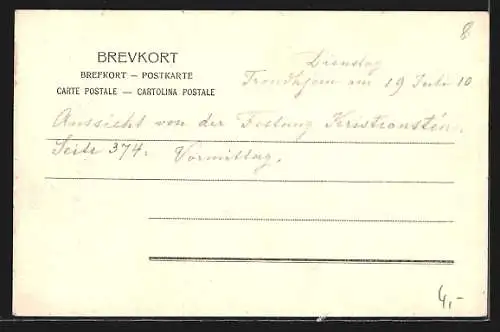 8
BREVKORT
BREFKORT — POSTKARTE
CARTE POSTALE — CARTOLINA POSTALE
Dienstag
Trondhjem am 19 Juli 10
Aussicht von der Festung Kristiansten.
Seite 374. Vormittag.
4,-